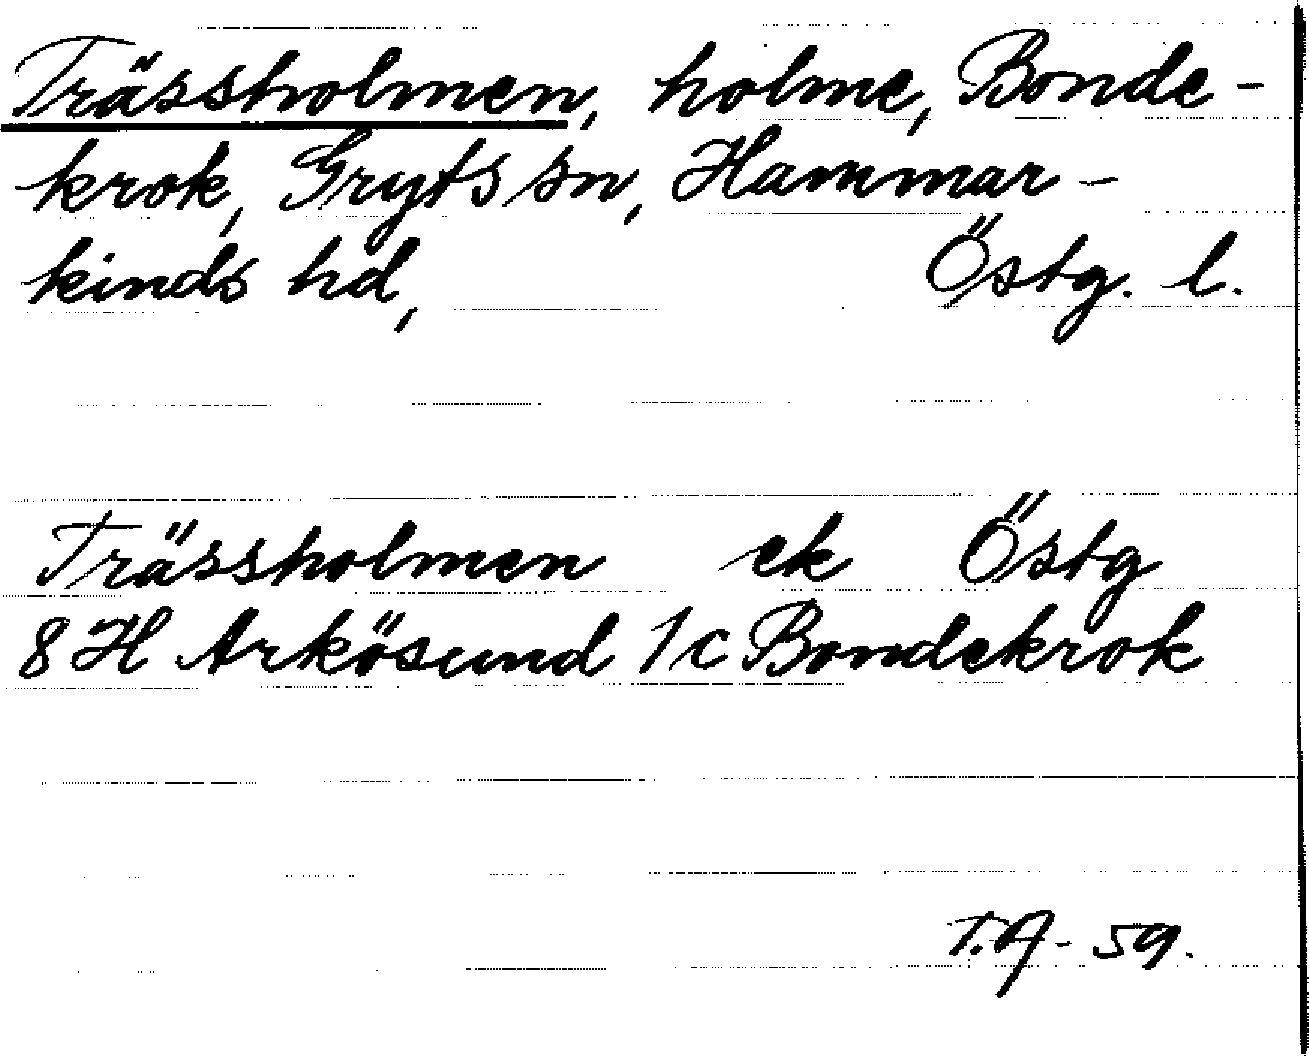 Trässholmen, holme, Bonde-
krok, Gryts sn, Hammar-
kinds hd, Östg. l.
Trässholmen ek Östg
8H Arkösund 1c Bondekrok
T.A-59.